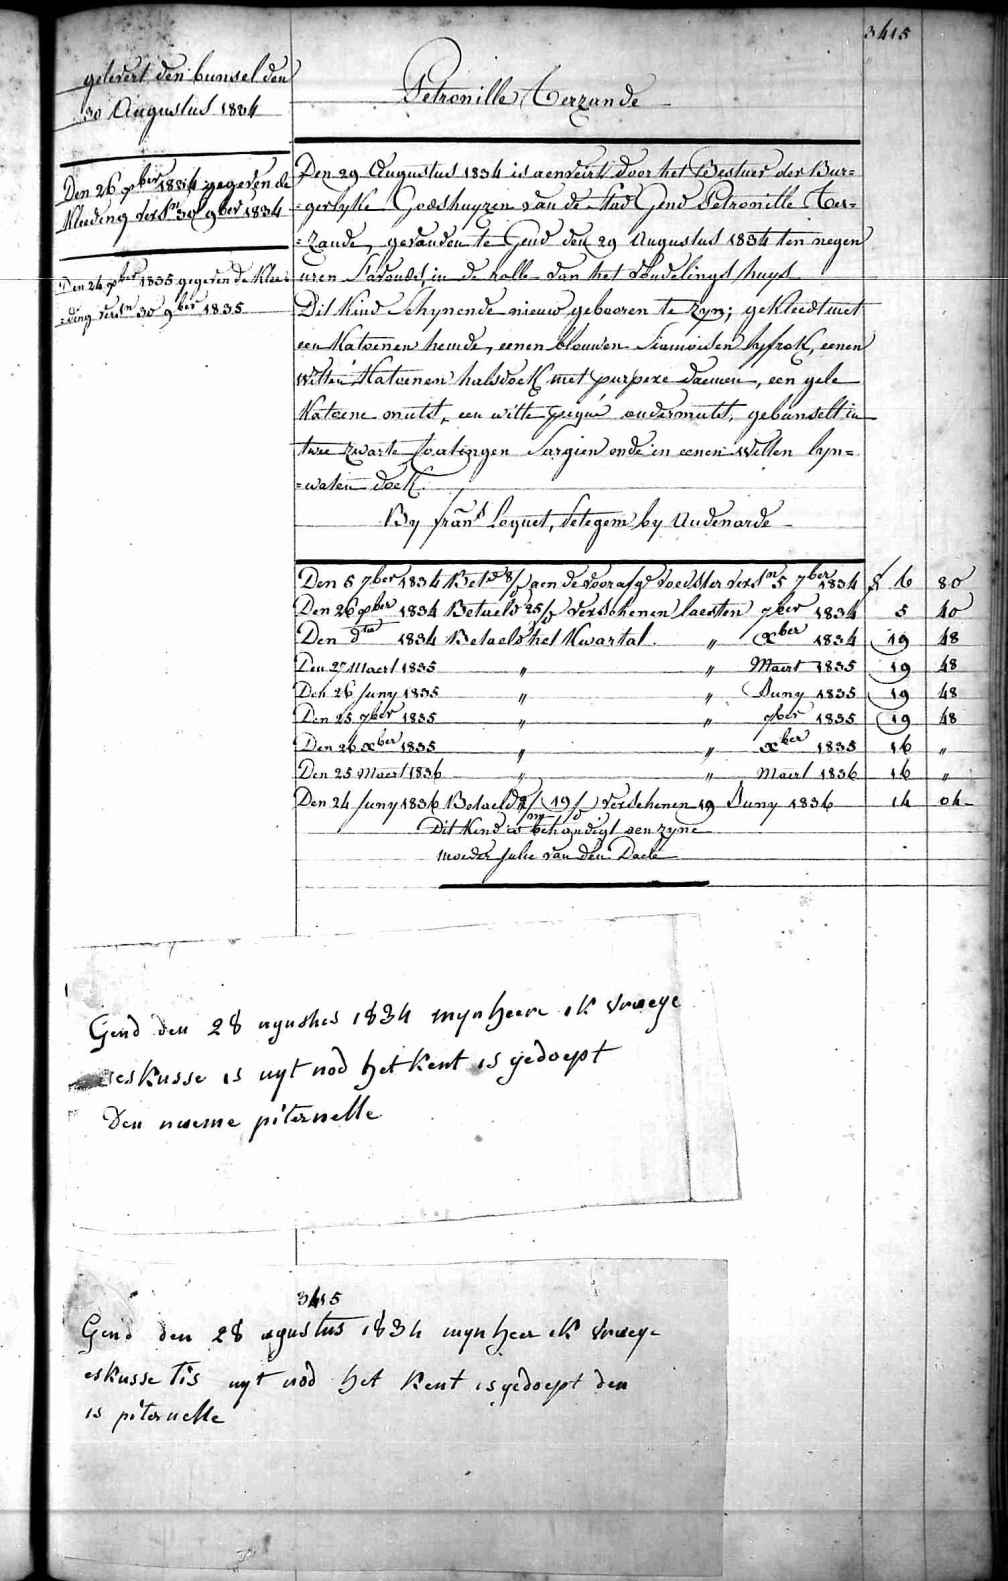 3415
gelevert den bunsel den
30 Augustus 1834
Petronille Terzande
Den 26 xber 1834 gegeven de
Kleeding versn 30 9ber 1834
Den 24 xber 1835 gegeven de Klee=
=ding versn 30 9ber 1835
Den 29 Augustus 1834 is aenveirt door het Bestuer der Bur=
=gerlyke Godshuyzen van de Stad Gend Petronille Ter=
=Zande, gevonden te Gend den 29 Augustus 1834 ten negen
uren s'avonds, in de rolle van het vondelings huys
Dit Kind schynende nieuw gebooren te zyn; gekleedt met
een Katoenen hemde, eenen blauwen Siamoisen lyfrok, eenen
Witten Katoenen halsdoek met purpere daemen, een gele
Katoene muts, een witte piqué ondermuts, gebunselt in
twee zwarte Sargien ende in eenen Witten lyn=
=waten doek.
By frans Loquet, Petegem by Audenarde
Den 6 7ber 1834 Betd 8/ aen de voorafge voedster versn 5 7ber 1834 f 6 80
Den 26 xber 1834 Betaeld 25/ verschenen laesten 7ber 1834 5 40
Den dto 1834 Betaeld het Kwartal " xber 1834 19 48
Den 27 Maert 1835 " " Maert 1835 19 48
Den 26 Juny 1835 " " Juny 1835 19 48
Den 25 7ber 1835 " " 7ber 1835 19 48
Den 26 xber 1835 " " xber 1835 16 "
Den 25 Maert 1836 " " Maert 1836 16 "
Den 24 Juny 1836 Betaeld 2/m 19/d verschenen 19 Juny 1836 14 04
Dit Kind is behandigt aen zyne
moeder Julie van den Daele
Gend den 28 agustes 1834 mynheere ik vraege
eskusse is uyt nod het Kent is gedoept
Den naeme piternelle
3415
Gend den 28 agustus 1834 mynheer ik vraege
eskusse tis uyt nod het Kent is gedoept den
is piternelle